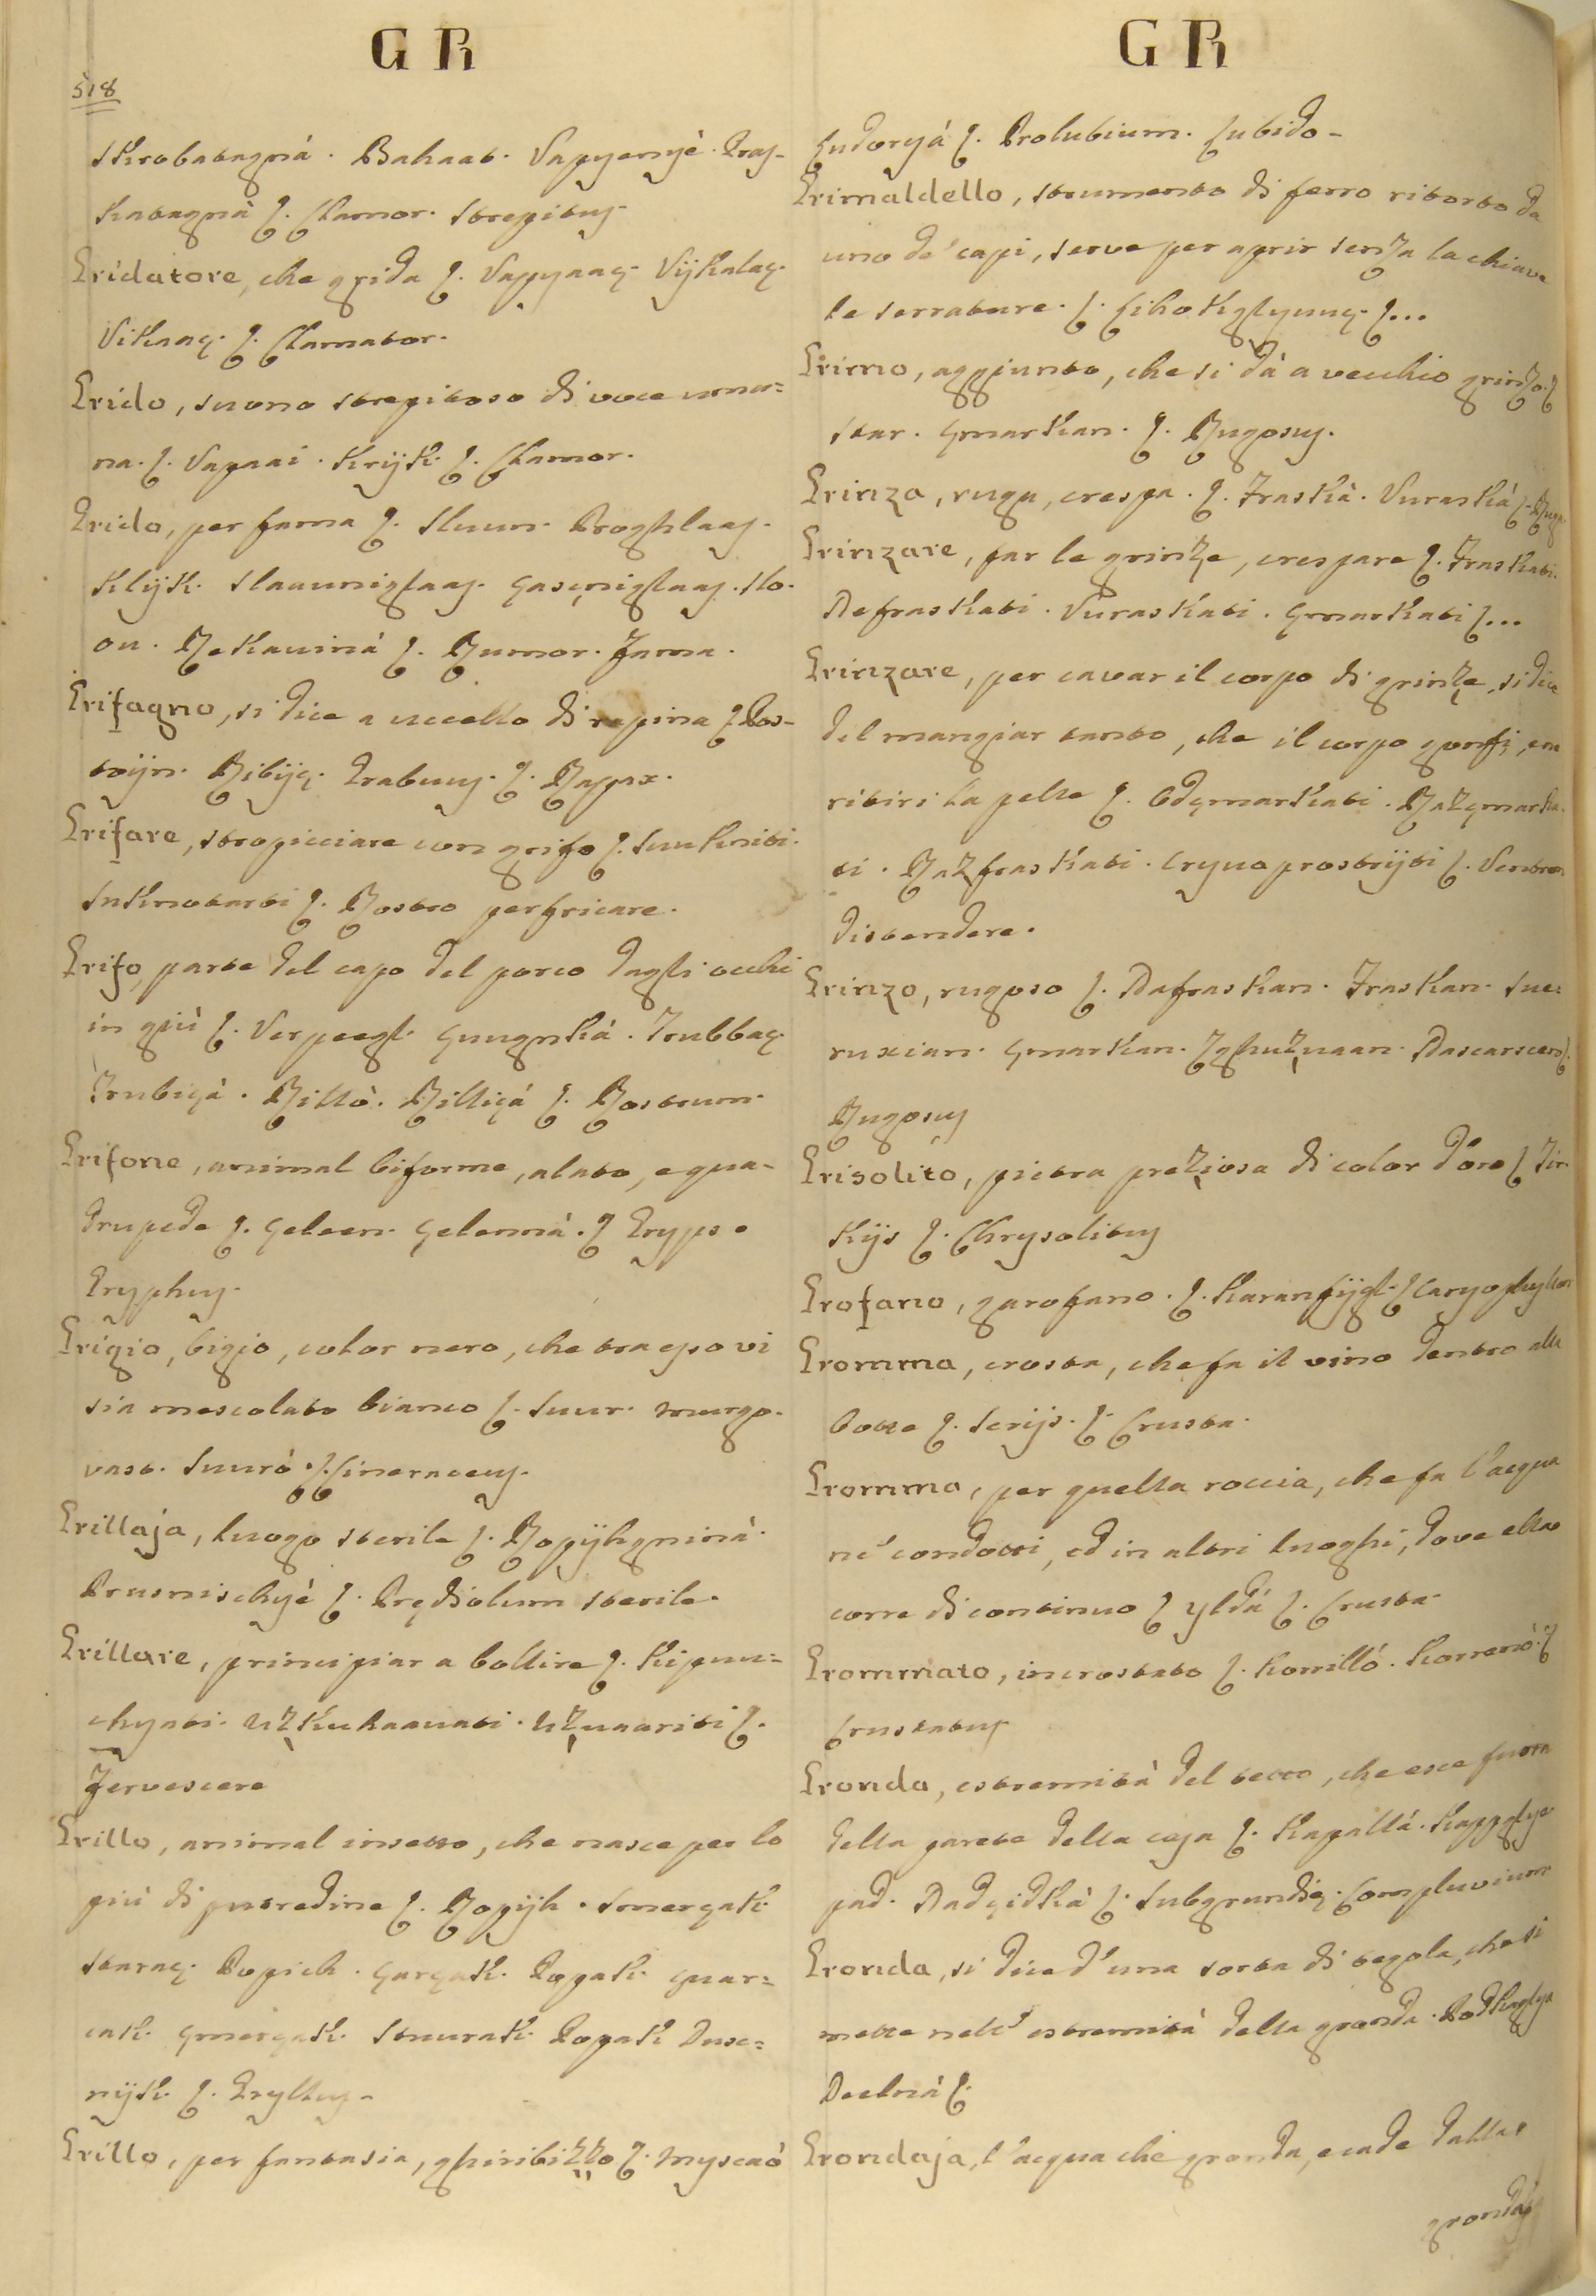 G R
518
skrobatagná. Bahaat. Vapyenyè. Pras-
katagnà ſ. Clamor. strepitus.
Gridatore, che grida ſ. Vapyaaç. Vijkalaç.
Vikaaç. ſ. Clamator.
Grido, suono strepitoso di voce uma=
na. ſ. Vapaai. Krijk. ſ. Clamor.
Grido, per fama ſ. Sluun. Proghlaas.
Klijk. slaauniglaas. glaas. slo-
on. Rekauinà ſ. Rumor. Fama.
Grifagno, si dice a uccello di rapina ſ.
Ribijç. Grabuuç. ſ. Rapax.
Grifare, stropicciare con grifo ſ. suukniti.
ſ. Rostro perfricare.
Grifo, parte del capo del porco dagli occhi
in giù ſ. çungnkà. Trubbaç.
Trubiçà. Rillò. Rilliçà ſ. Rostrum.
Grifone, animal biforme, alato, e qua-
drupede ſ. geleen. gelennà. ſ Gryps.
Gryphus.
Grigio, bigio, color nero, che tra esso vi
sia mescolato bianco ſ. suur. murgo-
vast. suurò. ſ. Cineraceus.
Grillaja, luogo sterile ſ. Popijhgninà.
ſ. Prędiolum sterile.
Grillare, principiar a bollire ſ. Kipuu=
chyati. uzkuhaauati. uzuaariti ſ.
Fervescere
Grillo, animal insetto, che nasce per lo
più di putredine ſ. Popijh. smerçak.
sturaç. Popich. çarçak. Popak. çuar=
cak. çmerçak. stuurak. Popak Duse=
nijk. ſ. Gryllus.
Grillo, per fantasia, ghiribizzo ſ. Myscaò
G R
çudoryà ſ. Prolubium. Cubido-
Grimaldello, strumento di ferro ritorto da
uno de' capi, serve per aprir senza la chiave
le serrature. ſ. ſ...
Grimo, aggiunto, che si dà a vecchio grinzo. ſ
star. çmarkan. ſ. Rugosus.
Grinza, ruga, crespa. ſ. Fraskà. Vuraskà ſ. Ruga
Grinzare, far le grinze, crespare ſ. Fraskati.
Nafraskati. Vuraskati. çmarkati ſ...
Grinzare, per cavar il corpo di grinze, si dice
del mangiar tanto, che il corpo gonfi, e ne
ritiri la pelle ſ. Odçmarkati. Razçmarka-
ti. Razfraskati. Cryuo prostrijti ſ. Ventrem
distendere.
Grinzo, rugoso ſ. Nafraskan. Fraskan. sue=
ruxian. çmarkan. Zghuzuaan. ſ.
Rugosus
Grisolito, pietra preziosa di color d'oro ſ Tir-
kijs ſ. Chrysolitus
Grofano, garofano. ſ. Karanfijgl. ſ Caryophyllon
Gromma, crosta, che fa il vino dentro alla
botte ſ. serijs. ſ. Crusta.
Gromma, per quella roccia, che fa l'acqua
ne' condotti, ed in altri luoghi, dove ella
corre di continuo ſ yldà ſ. Crusta-
Grommato, incrostato ſ. Korrillò. ſ
Crustatus
Gronda, estremità del tetto, che esce fuora
della parete della casa ſ. Kapallà.
pad. ſ. Subgrundię. Compluvium
Gronda, si dice d'una sorta di tegola, che si
mette nell' estremità della gronda.
ſ.
Grondaja, l'acqua che gronda, e cade dalla
gronda